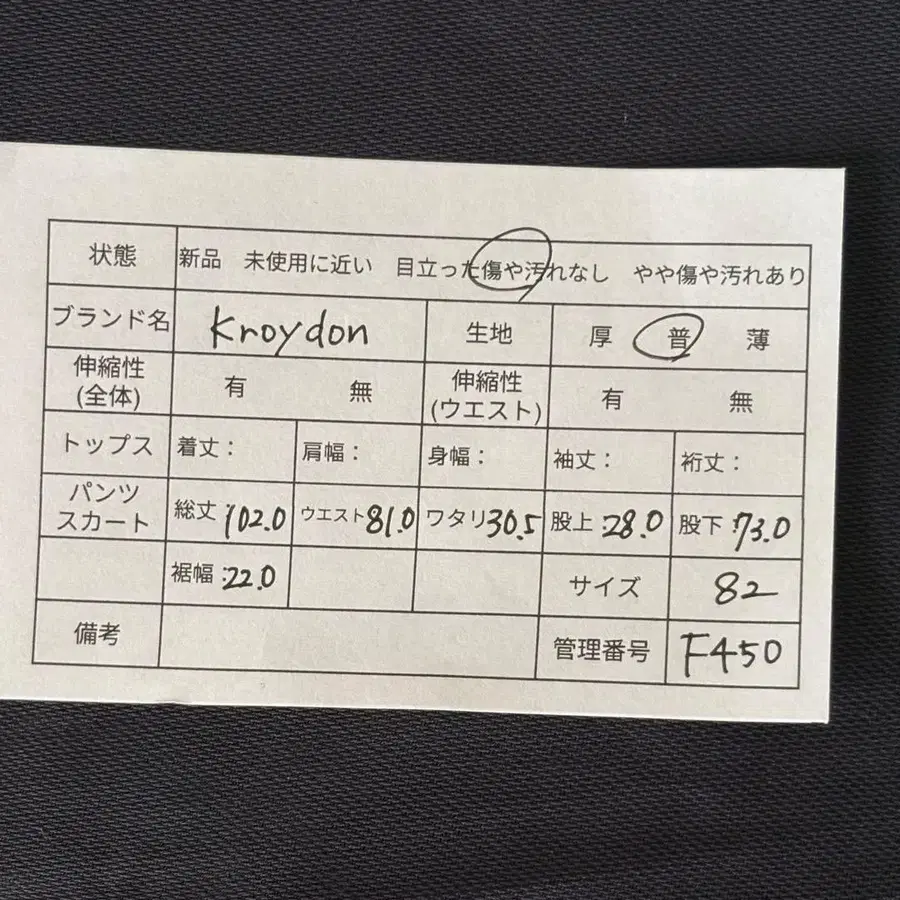 状態 新品 未使用に近い 目立った傷や汚れなし やや傷や汚れあり
ブランド名 Kroydon 生地 厚 普 薄
伸縮性 有 無 伸縮性 有 無
(全体) (ウエスト)
トップス 着丈: 肩幅: 身幅: 袖丈: 裄丈:
パンツ 総丈:102.0 ウエスト81.0 ワタリ30.5 股上:28.0 股下:73.0
スカート
裾幅:22.0 サイズ 82
備考 管理番号 F450